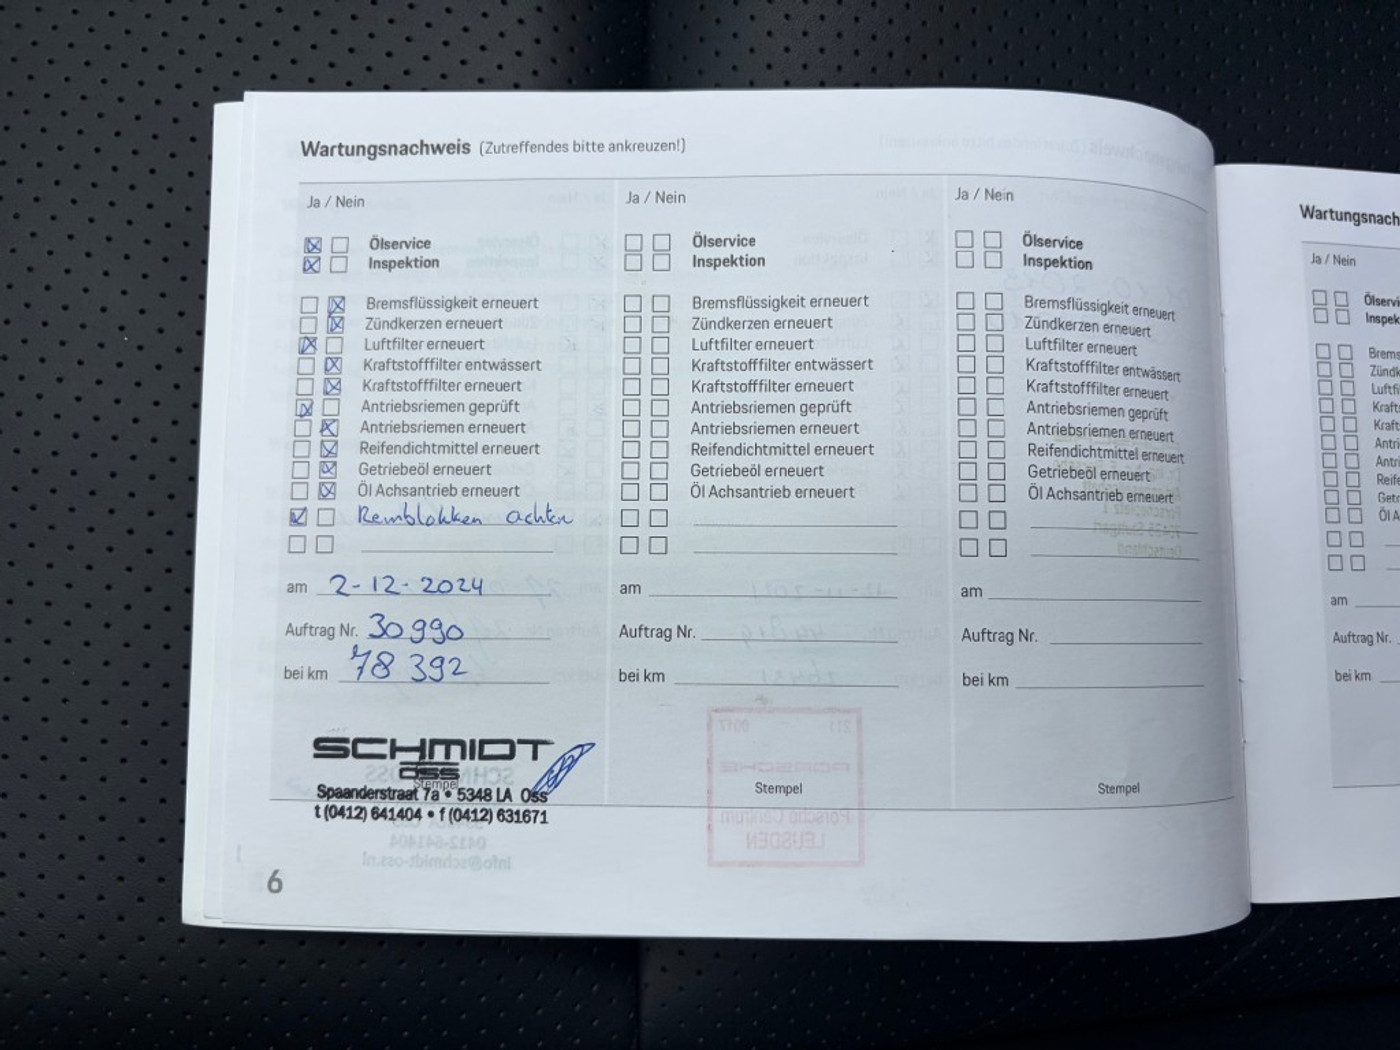 Wartungsnachweis (Zutreffendes bitte ankreuzen!)
Ja / Nein
Ölservice
Inspektion
Bremsflüssigkeit erneuert
Zündkerzen erneuert
Luftfilter erneuert
Kraftstofffilter entwässert
Kraftstofffilter erneuert
Antriebsriemen geprüft
Antriebsriemen erneuert
Reifendichtmittel erneuert
Getriebeöl erneuert
Öl Achsantrieb erneuert
Remblokken achter
am 2-12-2024
Auftrag Nr. 30990
bei km 78 392
SCHMIDT
OSS
Stempel
Spaanderstraat 7a • 5348 LA Oss
t (0412) 641404 • f (0412) 631671
6
Ja / Nein
Ölservice
Inspektion
Bremsflüssigkeit erneuert
Zündkerzen erneuert
Luftfilter erneuert
Kraftstofffilter entwässert
Kraftstofffilter erneuert
Antriebsriemen geprüft
Antriebsriemen erneuert
Reifendichtmittel erneuert
Getriebeöl erneuert
Öl Achsantrieb erneuert
am
Auftrag Nr.
bei km
Stempel
Ja / Nein
Ölservice
Inspektion
Bremsflüssigkeit erneuert
Zündkerzen erneuert
Luftfilter erneuert
Kraftstofffilter entwässert
Kraftstofffilter erneuert
Antriebsriemen geprüft
Antriebsriemen erneuert
Reifendichtmittel erneuert
Getriebeöl erneuert
Öl Achsantrieb erneuert
am
Auftrag Nr.
bei km
Stempel
Wartungsnach
Ja / Nein
Ölservi
Inspek
Brems
Zündk
Luftfi
Kraft
Kraft
Antri
Antri
Reife
Getr
Öl A
am
Auftrag Nr.
bei km